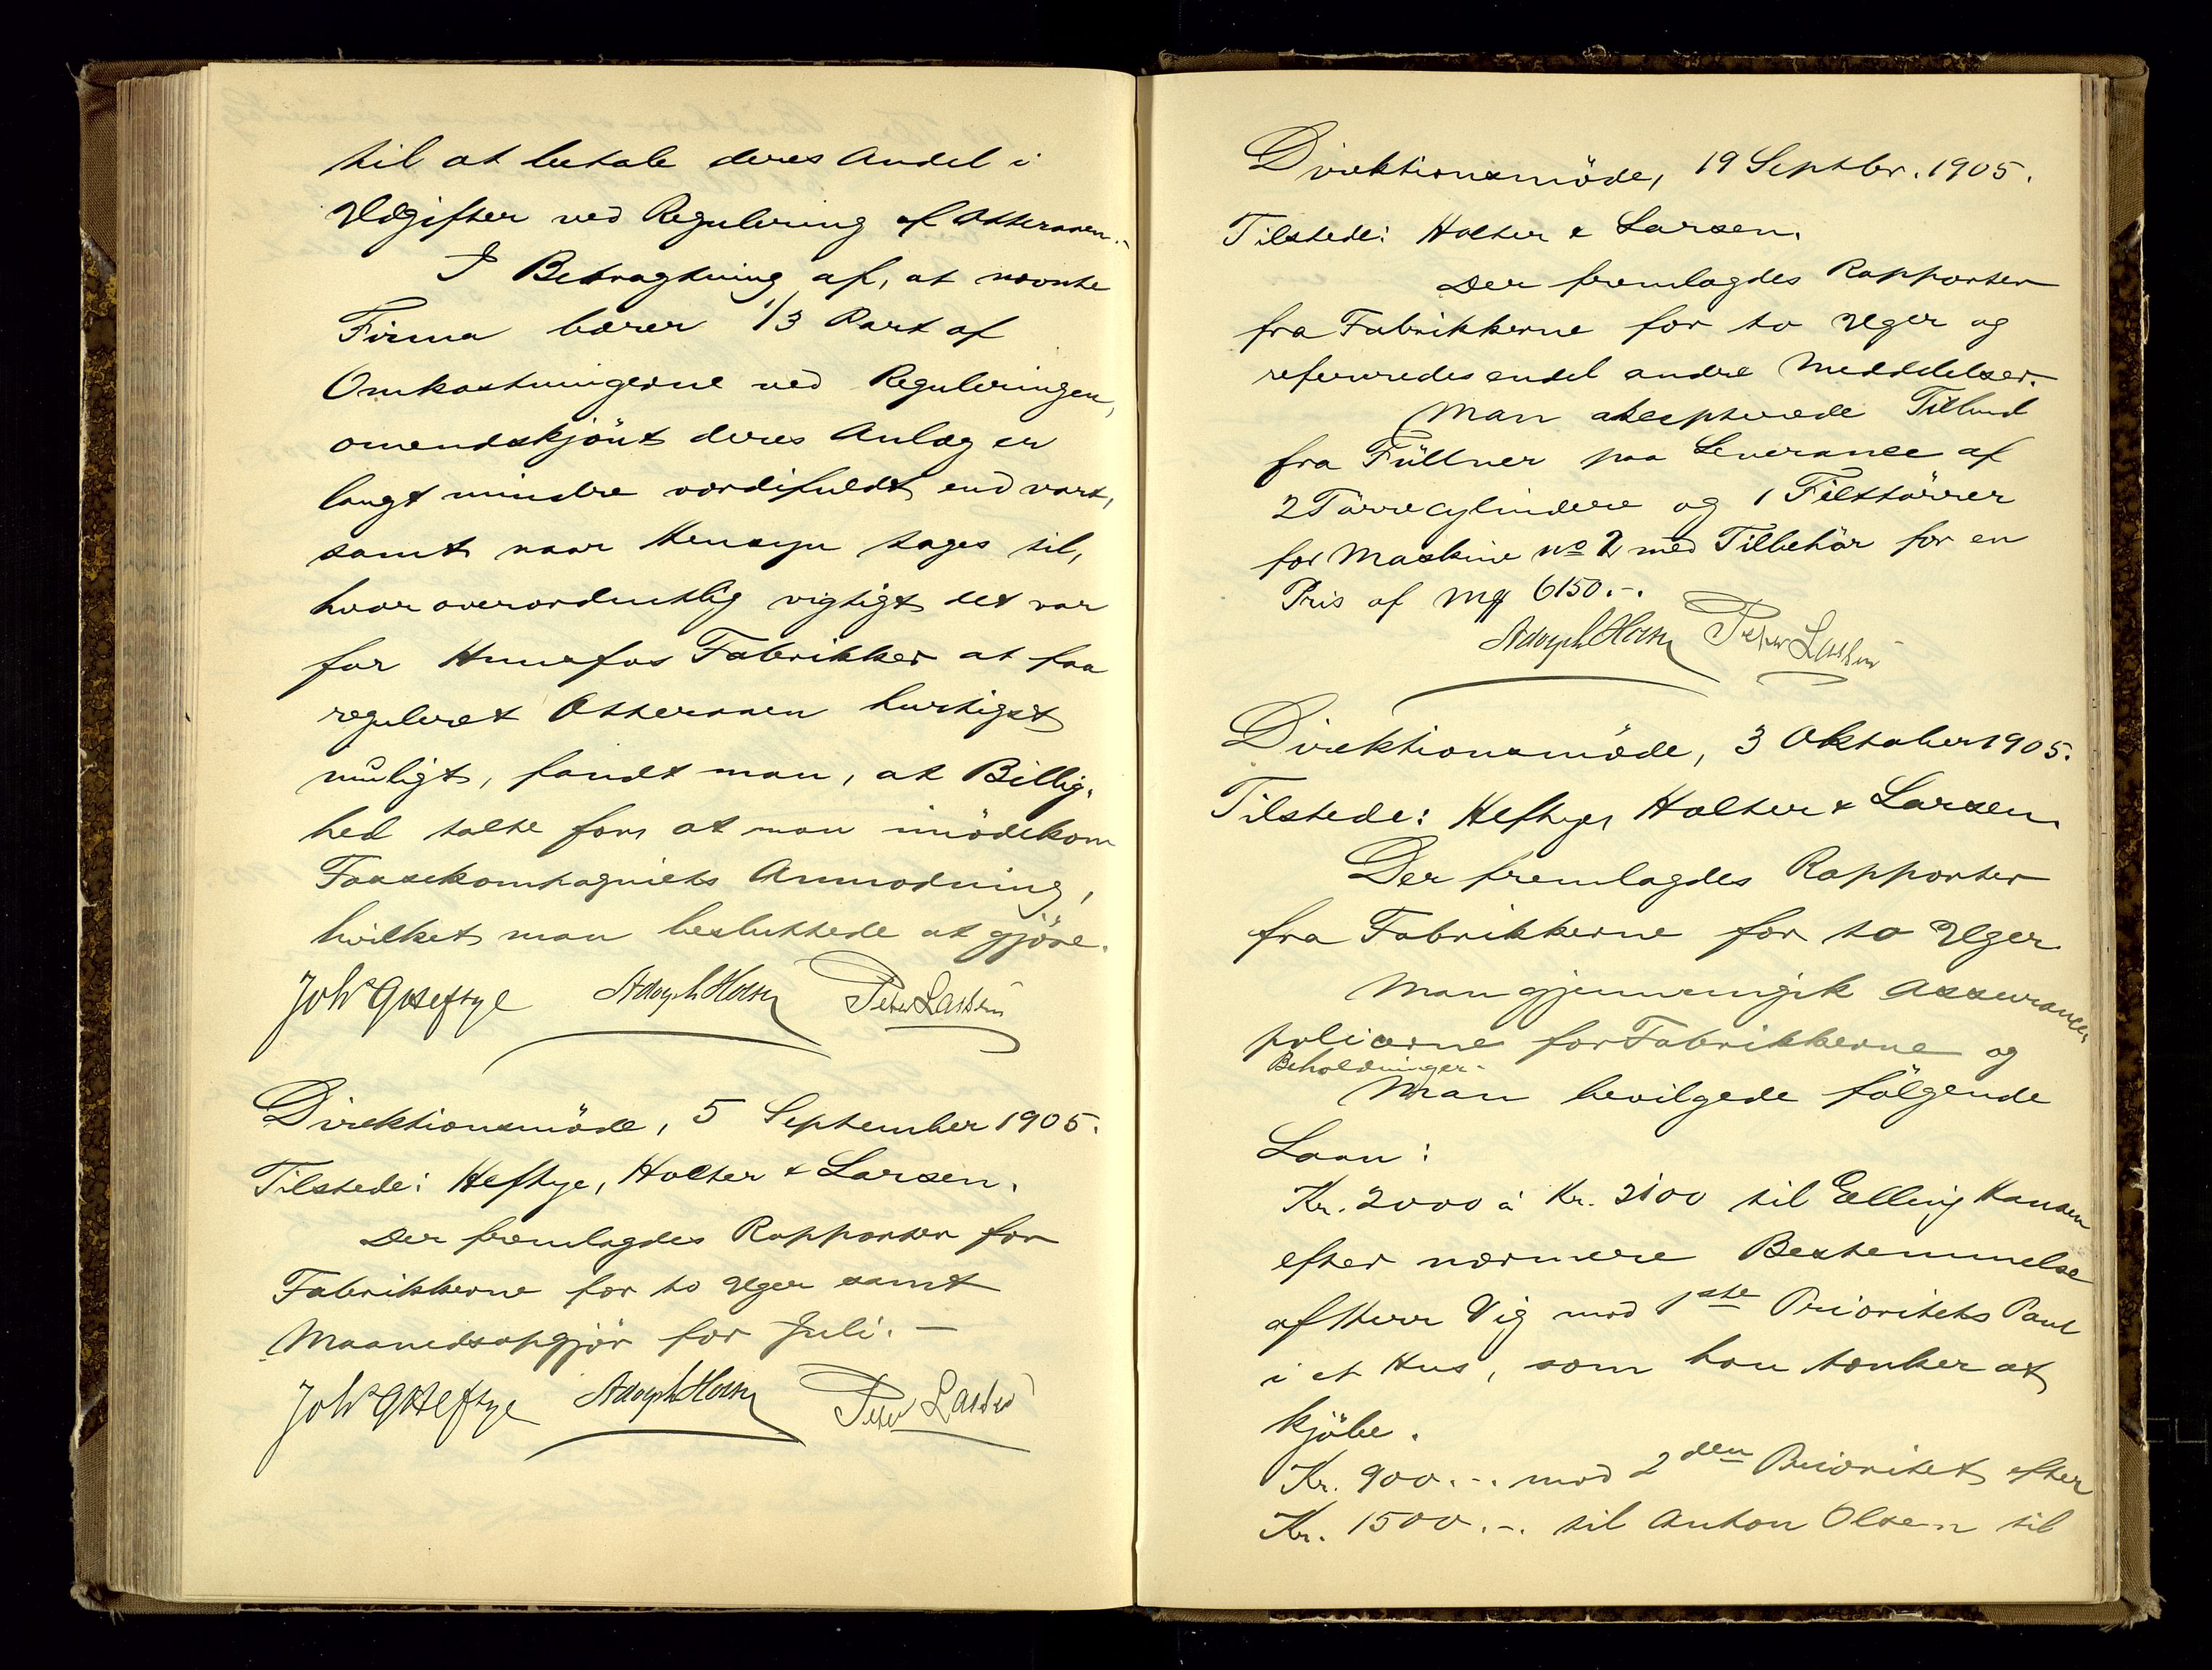 til at betale deres Andel i
Udgifter ved Regulering af Otteraaen.-
I Betragtning af, at nævnte
Firma bærer 1/3 Part af
Omkostningerne ved Reguleringen,
omendskjönt deres Anlæg er
langt mindre værdifuldt end vort,
samt naar Hensyn tages til,
hvor overordentlig vigtigt det var
for Hunsfos Fabrikker at faa
reguleret Otteraaen hurtigst
muligt, fandt man, at Billig-
hed talte for, at man imödekom
Fossekompagniets Anmodning,
hvilket man besluttede at gjöre.
Joh's G Heftye Adolph Holter Peter Larsen
Direktionsmöde, 5 September 1905.
Tilstede: Heftye, Holter & Larsen.
Der fremlagdes Rapporter for
Fabrikkerne for to Uger samt
Maanedsopgjör for Juli. —
Joh's G Heftye Adolph Holter Peter Larsen
Direktionsmöde, 19 Septbr. 1905.
Tilstede: Holter & Larsen.
Der fremlagdes Rapporter
fra Fabrikkerne for to Uger og
refereredes endel andre Meddelelser.
Man aksepterede Tilbud
fra Füllner paa Leverance af
2 Törrecylindere og 1 Filttörrer
for Maskine no 2 med Tilbehör for en
Pris af Mk 6150.-.
Adolph Holter Peter Larsen
Direktionsmöde, 3 Oktober 1905.
Tilstede: Heftye, Holter & Larsen.
Der fremlagdes Rapporter
fra Fabrikkerne for to Uger.
Man gjennemgik Assurance-
policerne for Fabrikkerne og
Beholdninger.
Man bevilgede fölgende
Laan:
Kr. 2000 à Kr. 2100 til Elling Hansen
efter nærmere Bestemmelse
af Herr Vig mod 1ste Prioritets Pant
i et Hus, som han tænker at
kjöbe.
Kr. 900.-. mod 2den Prioritet efter
Kr. 1500.-. til Anton Olsen til